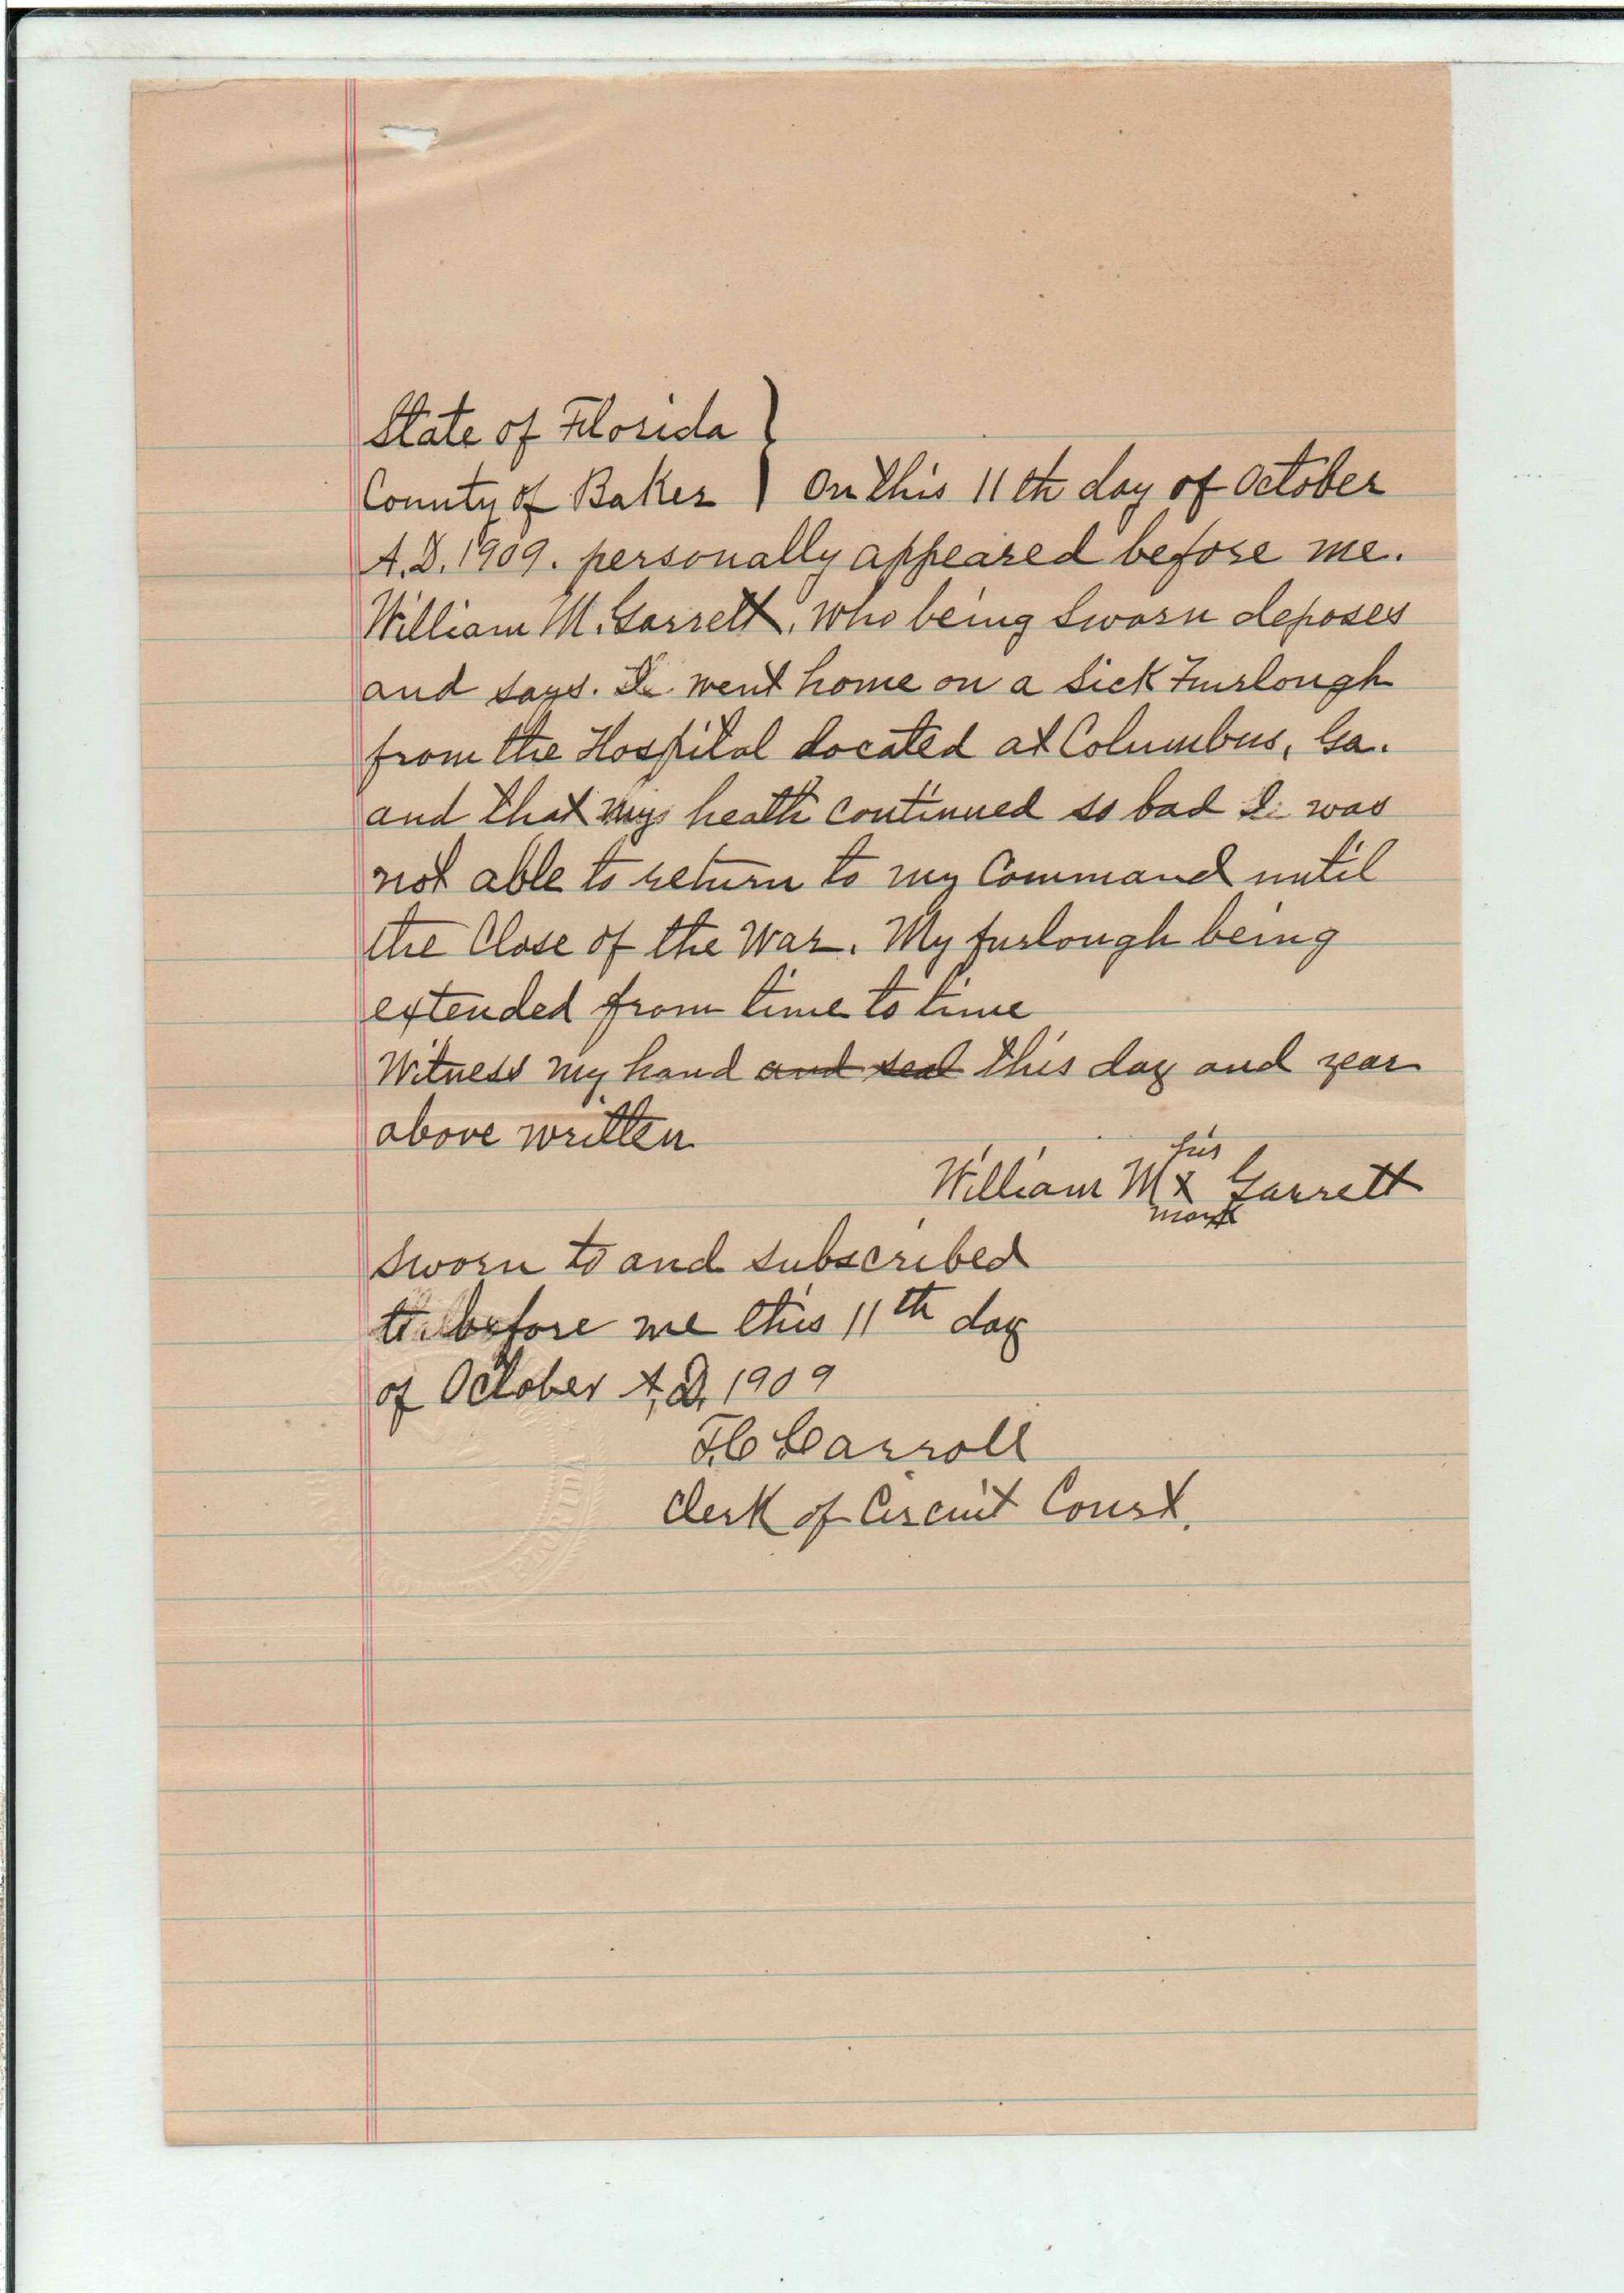 State of Florida }
County of Baker } On this 11th day of October
A.D. 1909. personally appeared before me.
William M. Garrett, who being sworn deposes
and says. I went home on a sick Furlough
from the Hospital located at Columbus, Ga.
and that my heath continued so bad I was
not able to return to my Command until
the Close of the War. My furlough being
extended from time to time
Witness my hand and seal this day and year
above written
his
William M x Garrett
mark
Sworn to and subscribed
to before me this 11th day
of October A.D. 1909
F.C Carroll
Clerk of Circuit Court.